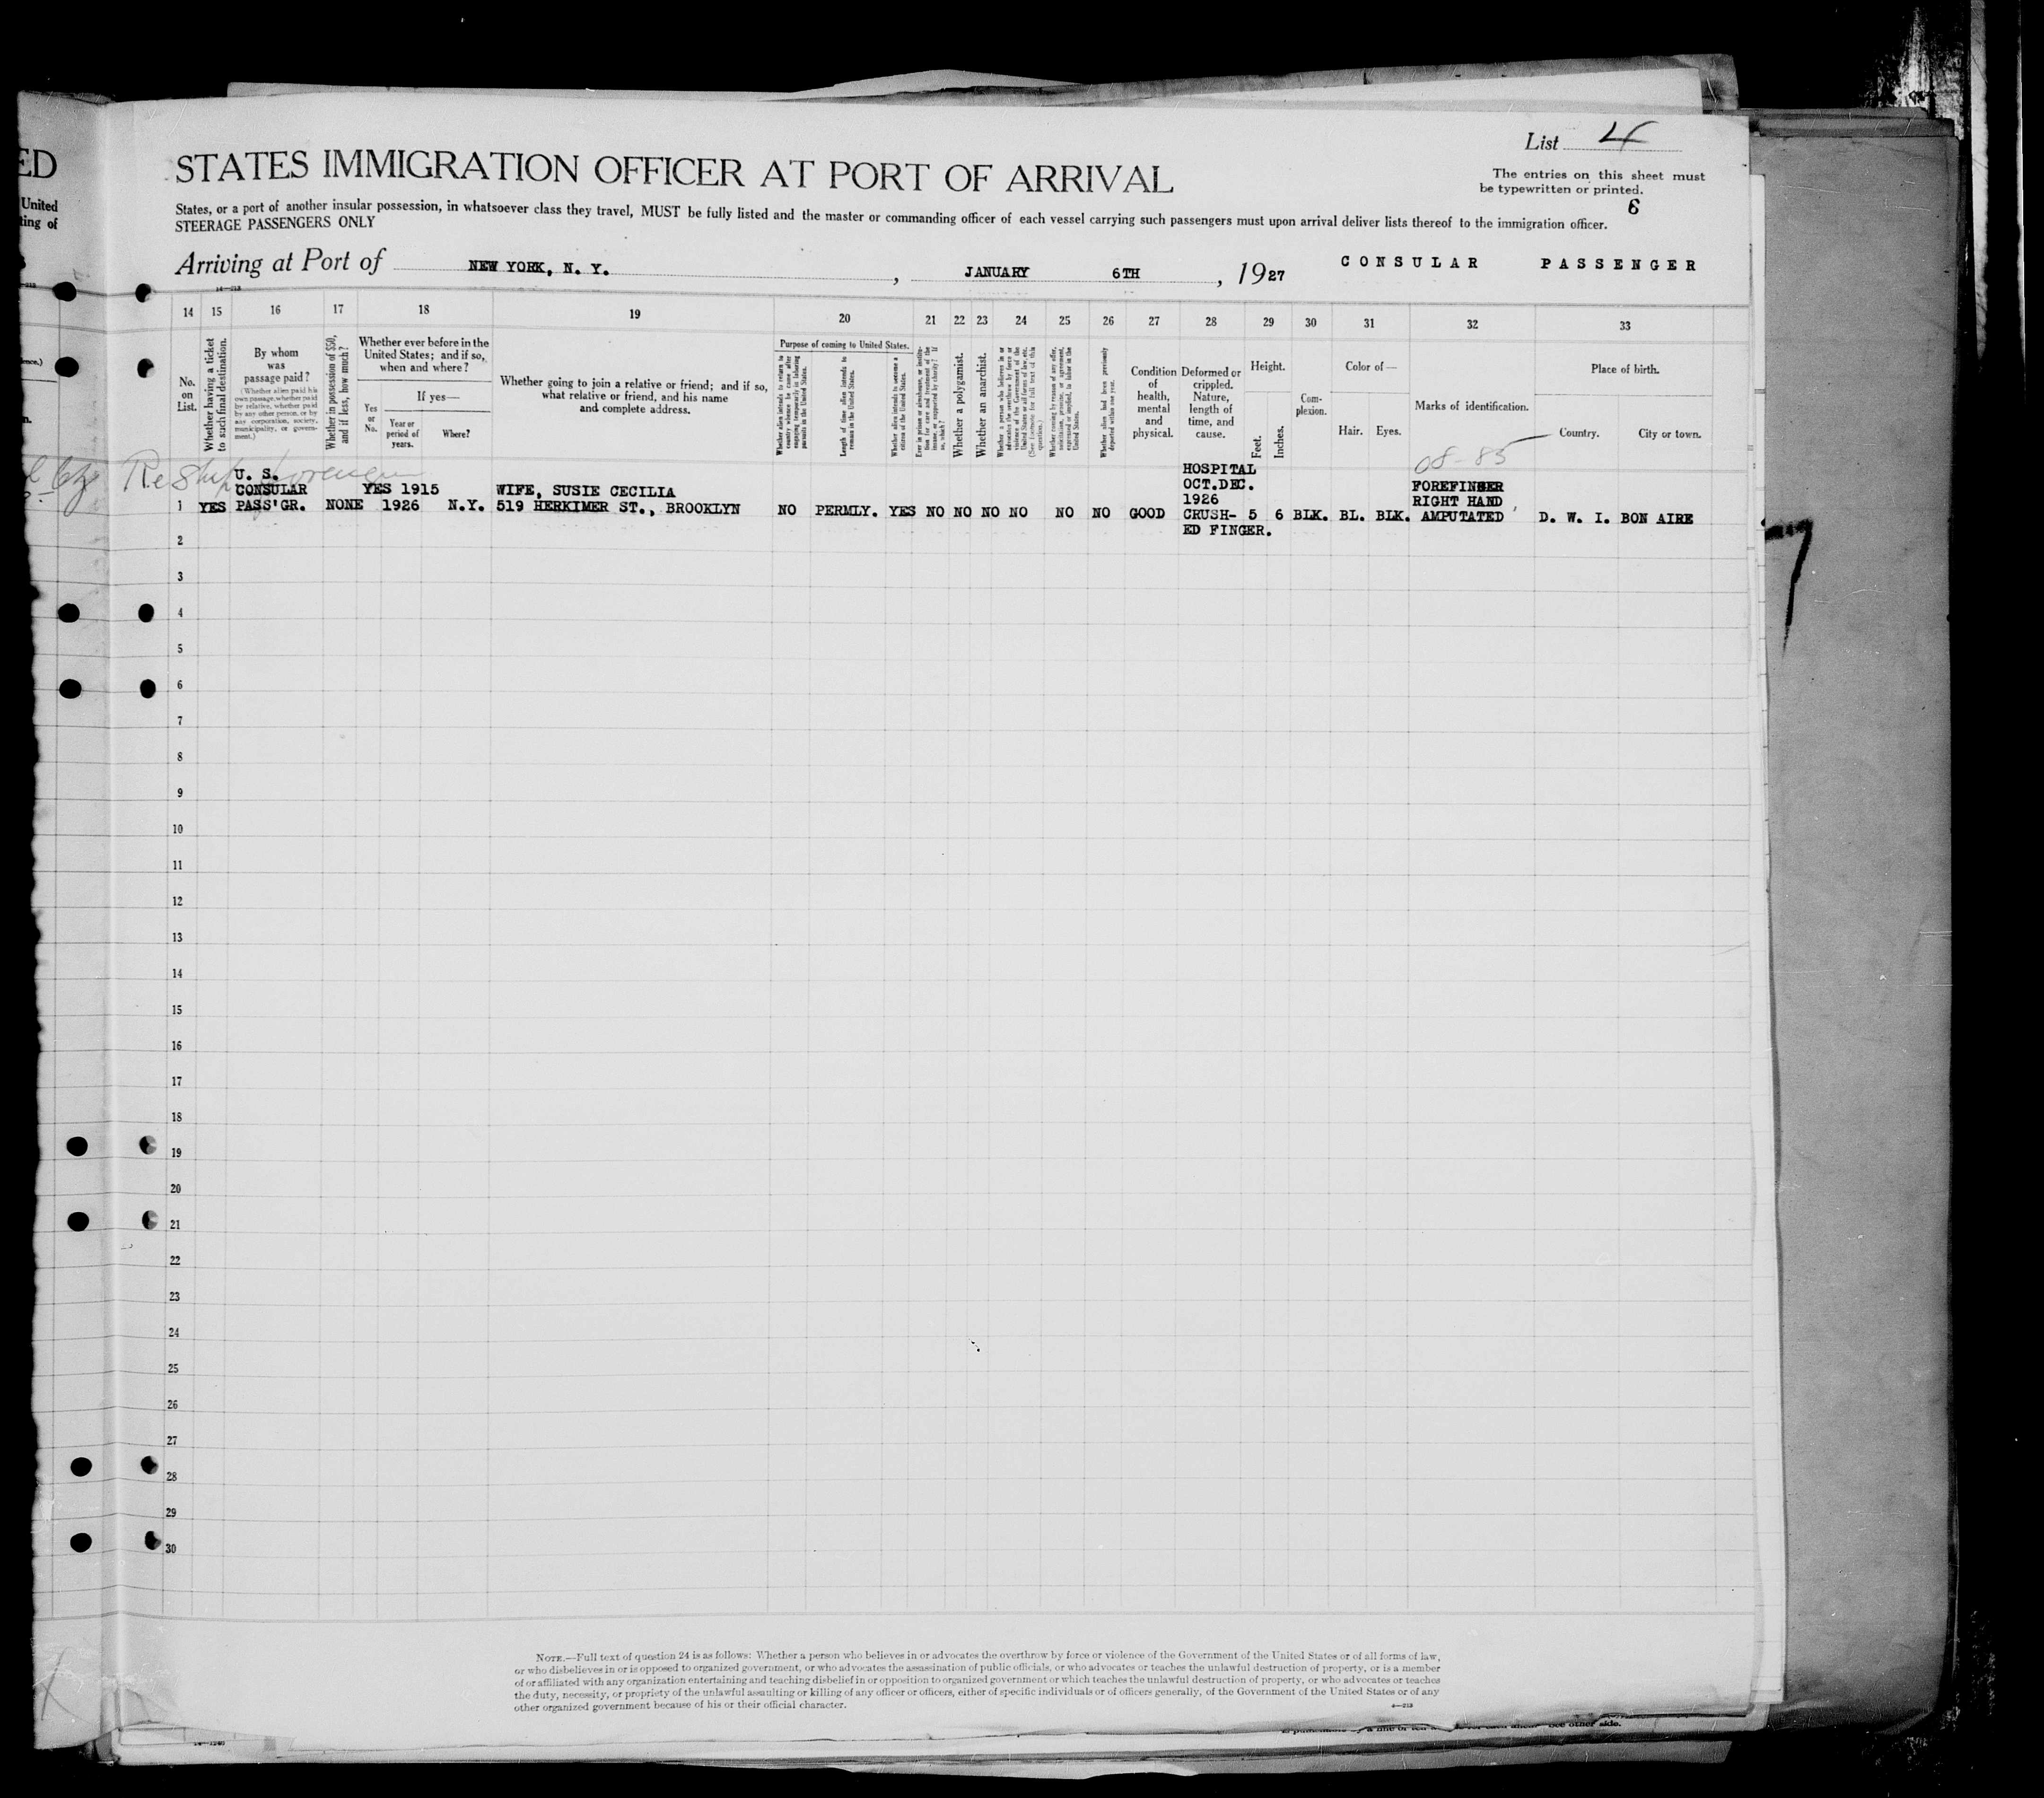 ED
United
ting of
List 4
STATES IMMIGRATION OFFICER AT PORT OF ARRIVAL
The entries on this sheet must
be typewritten or printed.
6
States, or a port of another insular possession, in whatsoever class they travel, MUST be fully listed and the master or commanding officer of each vessel carrying such passengers must upon arrival deliver lists thereof to the immigration officer.
STEERAGE PASSENGERS ONLY
Arriving at Port of NEW YORK, N. Y., JANUARY 6TH, 1927 CONSULAR PASSENGER
14 15 16 17 18 19 20 21 22 23 24 25 26 27 28 29 30 31 32 33
No. on List.
Whether having a ticket to such final destination.
By whom was passage paid?
(Whether alien paid his own passage, whether paid by relative, whether paid by any other person, or by any corporation, society, municipality, or government.)
Whether in possession of $50, and if less, how much?
Whether ever before in the United States; and if so, when and where?
Yes or No.
If yes—
Year or period of years.
Where?
Whether going to join a relative or friend; and if so, what relative or friend, and his name and complete address.
Purpose of coming to United States.
Whether alien intends to return to country whence he came after engaging temporarily in laboring pursuits in the United States.
Length of time alien intends to remain in the United States.
Whether alien intends to become a citizen of the United States.
Ever in prison or almshouse, or institution for care and treatment of the insane, or supported by charity? If so, which?
Whether a polygamist.
Whether an anarchist.
Whether a person who believes in or advocates the overthrow by force or violence of the Government of the United States or all forms of law, etc. (See footnote for full text of this question.)
Whether coming by reason of any offer, solicitation, promise, or agreement, expressed or implied, to labor in the United States.
Whether alien had been previously deported within one year.
Condition of health, mental and physical.
Deformed or crippled. Nature, length of time, and cause.
Height.
Feet. Inches.
Complexion.
Color of—
Hair. Eyes.
Marks of identification.
Place of birth.
Country. City or town.
08-85
1 YES U. S. CONSULAR PASS'GR. NONE YES 1915 1926 N.Y. WIFE, SUSIE CECILIA 519 HERKIMER ST., BROOKLYN NO PERMLY. YES NO NO NO NO NO NO GOOD HOSPITAL OCT.DEC. 1926 CRUSH-ED FINGER. 5 6 BLK. BL. BLK. FOREFINGER RIGHT HAND, AMPUTATED D. W. I. BON AIRE
2
3
4
5
6
7
8
9
10
11
12
13
14
15
16
17
18
19
20
21
22
23
24
25
26
27
28
29
30
NOTE.—Full text of question 24 is as follows: Whether a person who believes in or advocates the overthrow by force or violence of the Government of the United States or of all forms of law,
or who disbelieves in or is opposed to organized government, or who advocates the assassination of public officials, or who advocates or teaches the unlawful destruction of property, or is a member
of or affiliated with any organization entertaining and teaching disbelief in or opposition to organized government or which teaches the unlawful destruction of property, or who advocates or teaches
the duty, necessity, or propriety of the unlawful assaulting or killing of any officer or officers, either of specific individuals or of officers generally, of the Government of the United States or of any
other organized government because of his or their official character.
see other side.
7